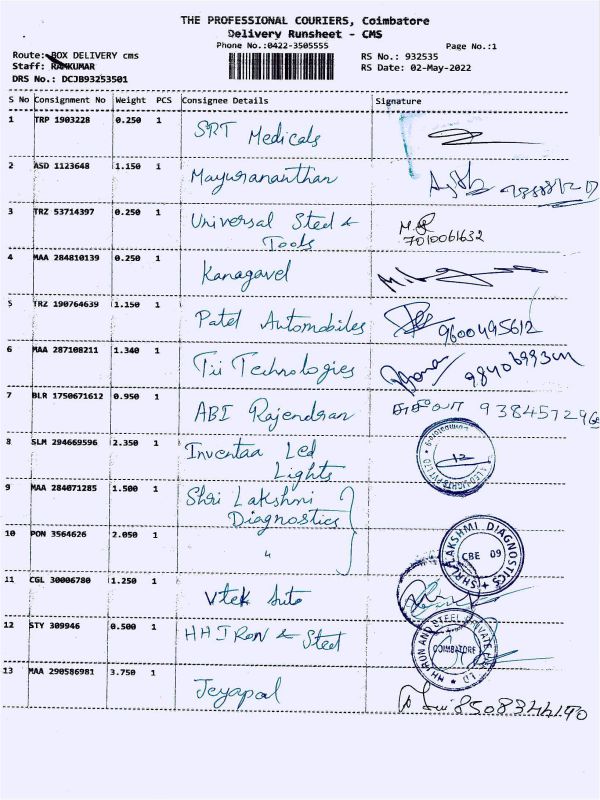 THE PROFESSIONAL COURIERS, Coimbatore
Delivery Runsheet - CMS
Phone No.:0422-3505555
Page No.:1
Route: BOX DELIVERY cms
RS No.: 932535
Staff: RAMKUMAR
RS Date: 02-May-2022
DRS No.: DCJB93253501
S No Consignment No Weight PCS Consignee Details Signature
1 TRP 1903228 0.250 1 SRT Medicals
2 ASD 1123648 1.150 1 Mayurananthan
3 TRZ 53714397 0.250 1 Universal Steel &
Tools
7010061632
4 MAA 284810139 0.250 1 Kanagavel
5 TRZ 190764639 1.150 1 Patel Automobiles 9600495612
6 MAA 287108211 1.340 1 Tii Technologies
7 BLR 1750671612 0.950 1 ABI Rajendran
8 SLM 294669596 2.350 1 Inventaa Led
Lights
12
9 MAA 284071285 1.500 1 Shri Lakshmi
Diagnostics
10 PON 3564626 2.050 1 "
SHRI LAKSHMI DIAGNOSTICS
CBE 09
11 CGL 30006780 1.250 1 Vtek Auto
12 STY 309946 0.500 1 HH IRON & Steel
HH IRON AND STEEL PRIVATE LTD
COIMBATORE
13 MAA 290586981 3.750 1 Jeyapal
8508344190